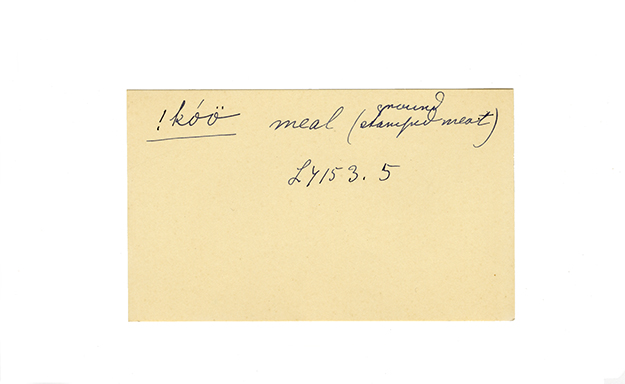 !kóö meal (ground stamped meat)
LY153. 5